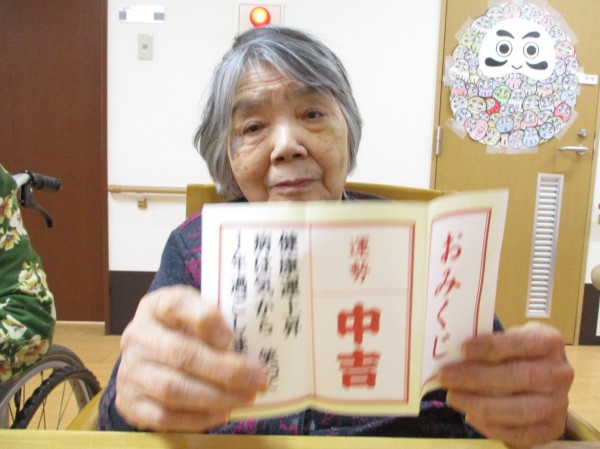 おみくじ
運勢
中吉
健康運上昇
病は気から
1年過ごしま